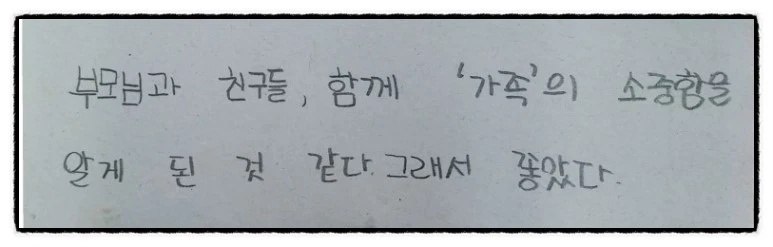 부모님과 친구들, 함께 '가족'의 소중함을
알게 된 것 같다. 그래서 좋았다.